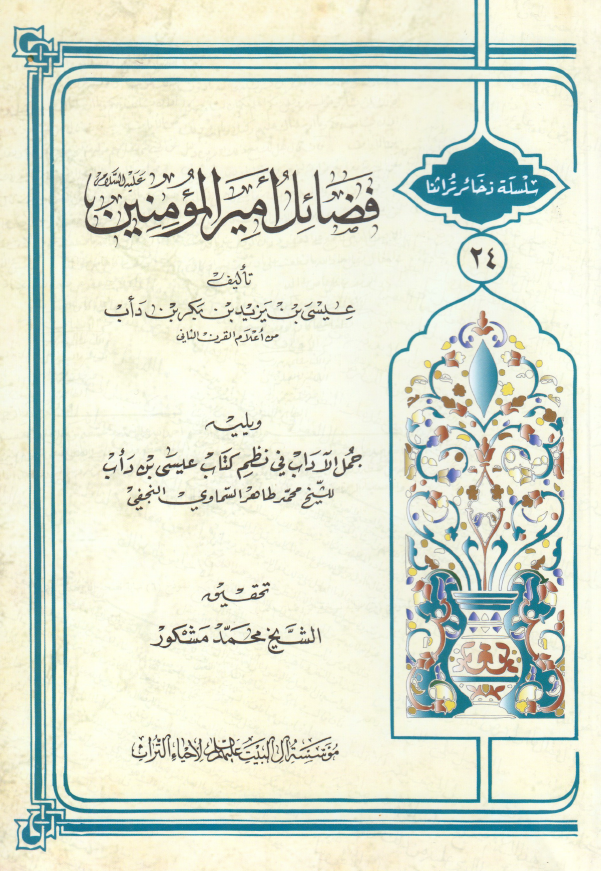 سلسلة ذخائر تراثنا
٢٤
فضائل أمير المؤمنين عليه السلام
تأليف
عيسى بن يزيد بن بكر بن دأب
من أعلام القرن الثاني
ويليه
جمل الآداب في نظم كتاب عيسى بن دأب
للشيخ محمد طاهر السماوي النجفي
تحقيق
الشيخ محمد مشكور
مؤسسة آل البيت عليهم السلام لإحياء التراث